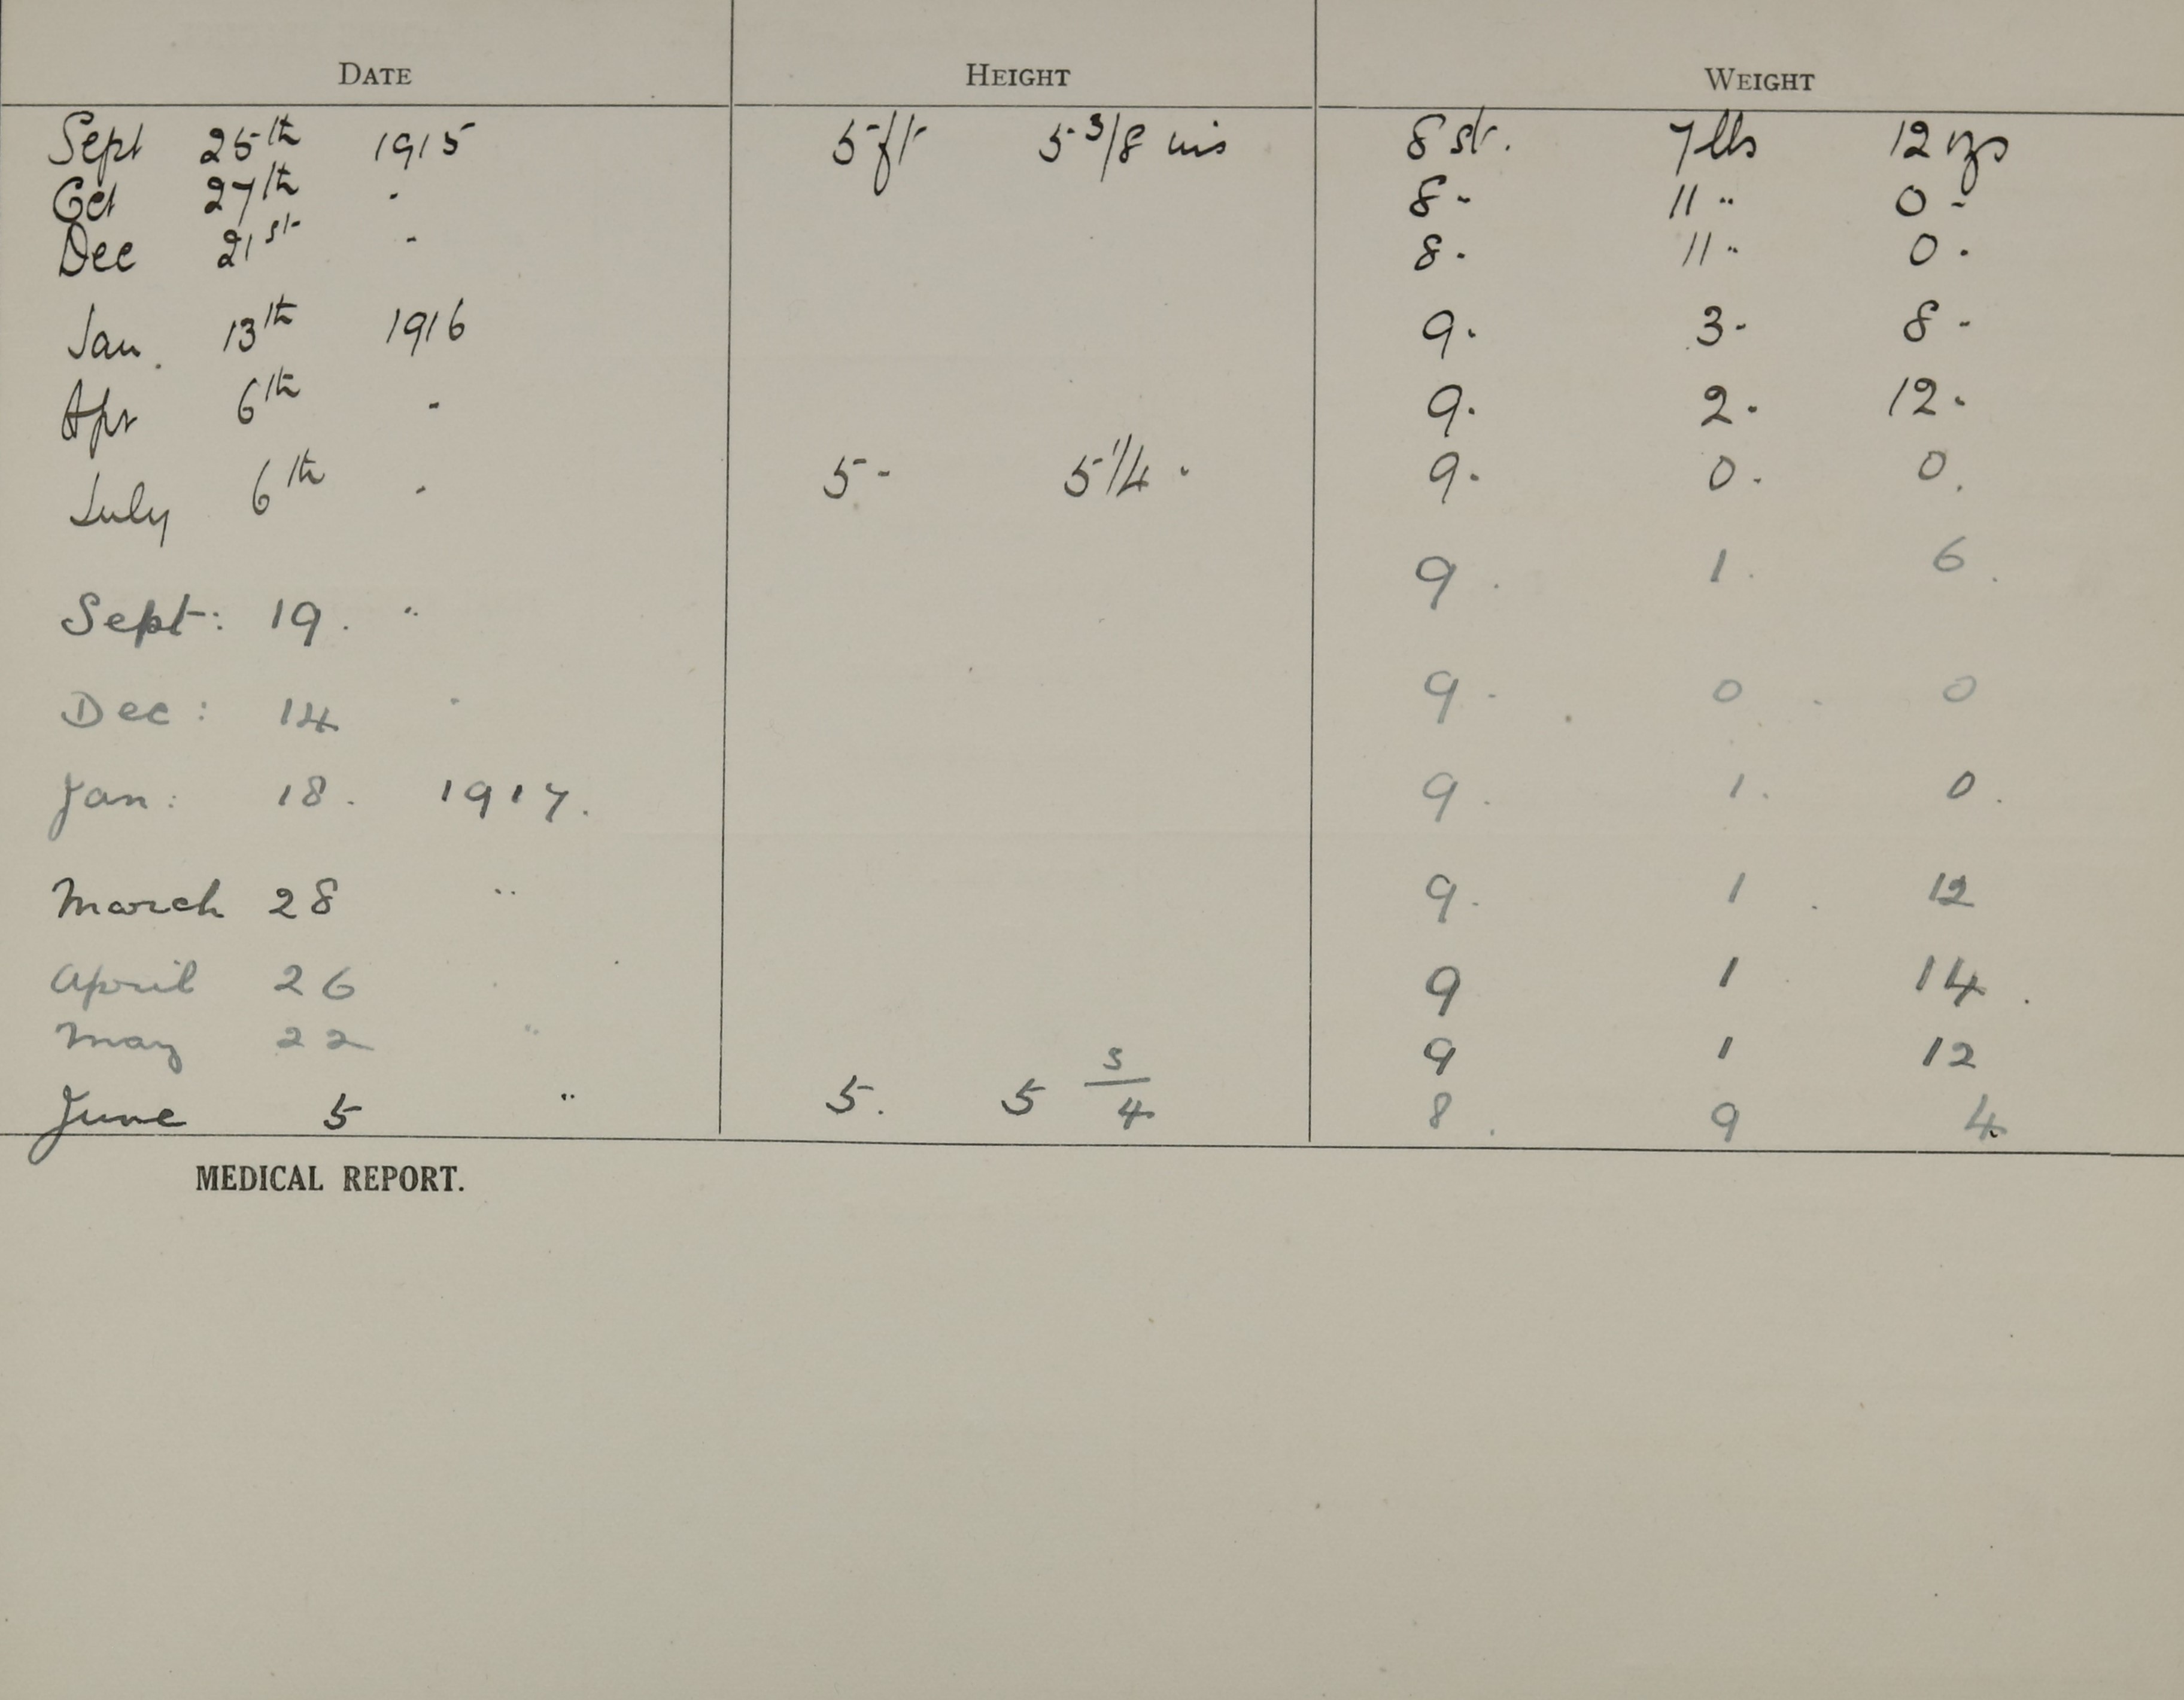 DATE HEIGHT WEIGHT
Sept 25th 1915 5 ft 5 3/8 ins 8 st. 7 lbs 12 ozs
Oct 27th - 8 - 11 " 0 -
Dec 21st - 8 . 11 " 0 .
Jan. 13th 1916 9 . 3 - 8 -
Apr 6th - 9 . 2 . 12 .
July 6th - 5 - 5 1/4 . 9 . 0 . 0 .
Sept: 19. " 9 . 1 . 6 .
Dec: 14 " 9 - 0 . 0
Jan: 18. 1917. 9 . 1 . 0 .
March 28 " 9 . 1 . 12
April 26 " 9 1 14 .
May 22 " 9 1 12
June 5 " 5. 5 3/4 8 . 9 4
MEDICAL REPORT.